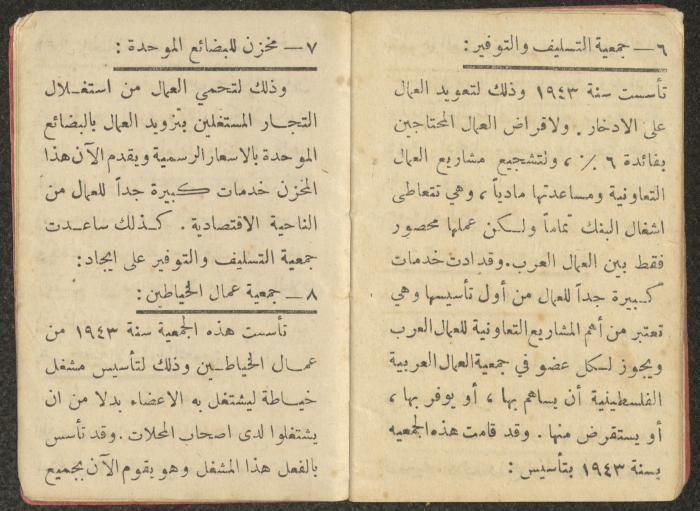 ٦ – جمعية التسليف والتوفير :
تأسست سنة ١٩٤٣ وذلك لتعويد العمال
على الادخار . ولاقراض العمال المحتاجين
بفائدة ٦ ٪ ، ولتشجيع مشاريع العمال
التعاونية ومساعدتها مادياً ، وهي تتعاطى
اشغال البنك تماماً ولكن عملها محصور
فقط بين العمال العرب . وقد ادت خدمات
كبيرة جداً للعمال من أول تأسيسها وهي
تعتبر من أهم المشاريع التعاونية للعمال العرب
ويجوز لكل عضو في جمعية العمال العربية
الفلسطينية أن يساهم بها ، أو يوفر بها ،
أو يستقرض منها . وقد قامت هذه الجمعيه
بسنة ١٩٤٣ بتأسيس :
٧ – مخزن للبضائع الموحدة :
وذلك لتحمي العمال من استغلال
التجار المستغلين بتزويد العمال بالبضائع
الموحدة بالاسعار الرسمية ويقدم الآن هذا
المخزن خدمات كبيرة جداً للعمال من
الناحية الاقتصادية . كذلك ساعدت
جمعية التسليف والتوفير على ايجاد :
٨ – جمعية عمال الخياطين :
تأسست هذه الجمعية سنة ١٩٤٣ من
عمال الخياطين وذلك لتأسيس مشغل
خياطة ليشتغل به الاعضاء بدلا من ان
يشتغلوا لدى اصحاب المحلات . وقد تأسس
بالفعل هذا المشغل وهو يقوم الآن بجميع